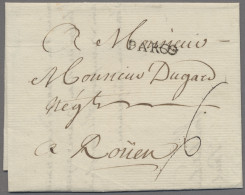 A Monsieur
DAROS
Monsieur Dugard
Négt
a Roüen